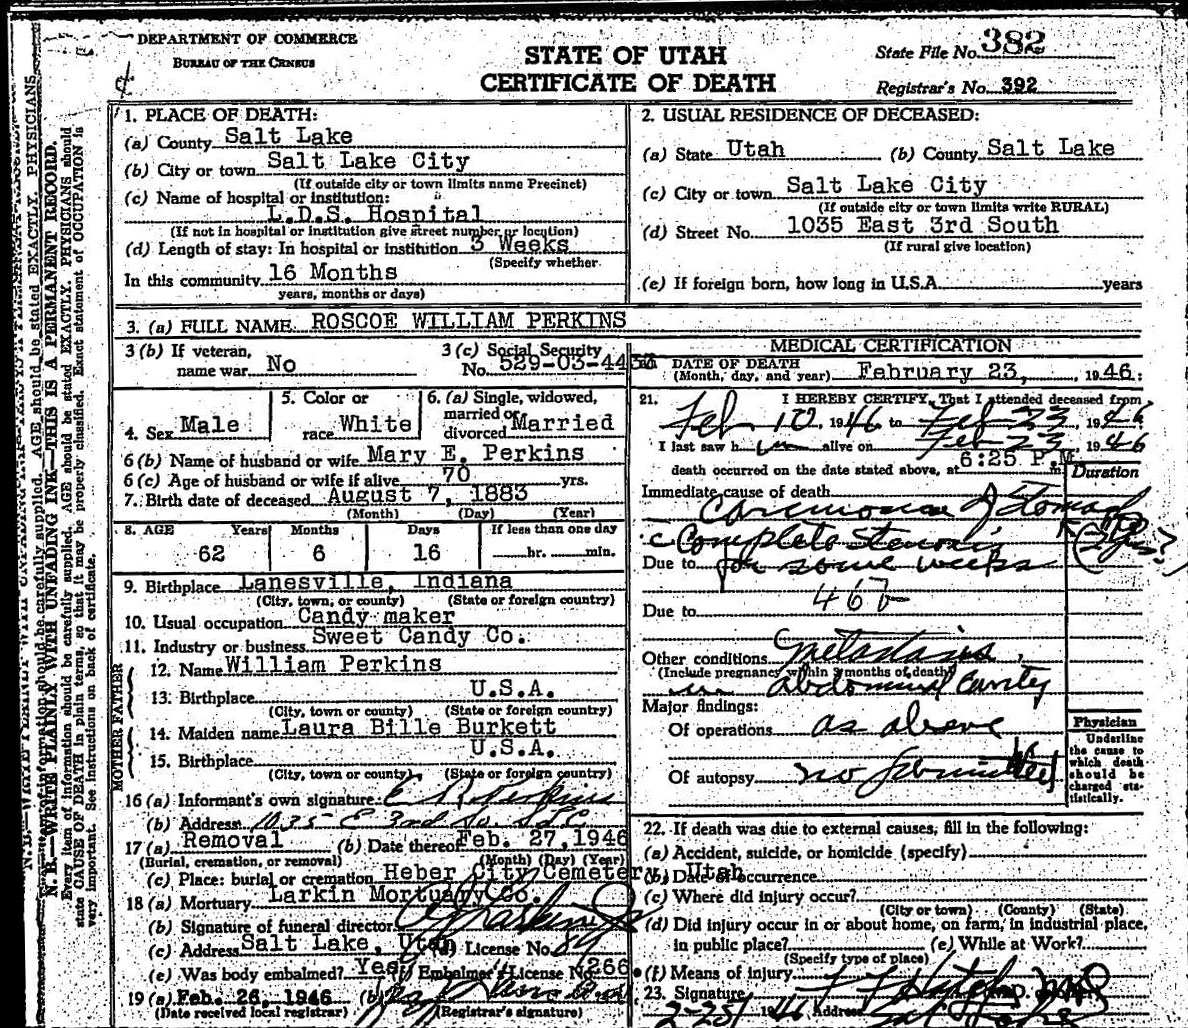 DEPARTMENT OF COMMERCE
BUREAU OF THE CENSUS
STATE OF UTAH
CERTIFICATE OF DEATH
State File No. 382
Registrar's No. 392
1. PLACE OF DEATH:
(a) County Salt Lake
(b) City or town Salt Lake City
(If outside city or town limits name Precinct)
(c) Name of hospital or institution:
L.D.S. Hospital
(If not in hospital or institution give street number or location)
(d) Length of stay: In hospital or institution 3 Weeks
(Specify whether
In this community 16 Months
years, months or days)
2. USUAL RESIDENCE OF DECEASED:
(a) State Utah (b) County Salt Lake
(c) City or town Salt Lake City
(If outside city or town limits write RURAL)
(d) Street No. 1035 East 3rd South
(If rural give location)
(e) If foreign born, how long in U.S.A. years
3. (a) FULL NAME ROSCOE WILLIAM PERKINS
3 (b) If veteran, name war No
3 (c) Social Security No. 529-03-44
4. Sex Male
5. Color or race White
6. (a) Single, widowed, married or divorced Married
6 (b) Name of husband or wife Mary E. Perkins
6 (c) Age of husband or wife if alive 70 yrs.
7. Birth date of deceased August 7, 1883
(Month) (Day) (Year)
8. AGE Years Months Days If less than one day
62 6 16 hr. min.
9. Birthplace Lanesville, Indiana
(City, town, or county) (State or foreign country)
10. Usual occupation Candy maker
11. Industry or business Sweet Candy Co.
FATHER
12. Name William Perkins
13. Birthplace U.S.A.
(City, town or county) (State or foreign country)
MOTHER
14. Maiden name Laura Bille Burkett
15. Birthplace U.S.A.
(City, town or county) (State or foreign country)
16 (a) Informant's own signature: E R Perkins
(b) Address 1035 E 3rd So. SLC
17 (a) Removal (b) Date thereof Feb. 27, 1946
(Burial, cremation, or removal) (Month) (Day) (Year)
(c) Place: burial or cremation Heber City Cemetery, Utah
18 (a) Mortuary Larkin Mortuary Co.
(b) Signature of funeral director
(c) Address Salt Lake, Utah (d) License No. 89
(e) Was body embalmed? Yes (f) Embalmer's License No. 266
19 (a) Feb. 26, 1946 (b)
(Date received local registrar) (Registrar's signature)
MEDICAL CERTIFICATION
20. DATE OF DEATH
(Month, day, and year) February 23, 1946:
21. I HEREBY CERTIFY, That I attended deceased from
Feb 10 1946 to Feb 23, 1946
I last saw him alive on Feb 23, 1946
death occurred on the date stated above, at 6:25 P.M. m
Duration
Immediate cause of death
Carcinoma of Stomach
c Complete Stenosis
Due to for some weeks
46b
Due to
Other conditions Metastasis
(Include pregnancy within 3 months of death)
in abdominal cavity
Major findings:
Of operations as above
Of autopsy no permitted
Physician
Underline the cause to which death should be charged statistically.
22. If death was due to external causes, fill in the following:
(a) Accident, suicide, or homicide (specify)
(b) Date of occurrence
(c) Where did injury occur?
(City or town) (County) (State)
(d) Did injury occur in or about home, on farm, in industrial place,
in public place? (e) While at Work?
(Specify type of place)
(f) Means of injury
23. Signature
2-25 1946 Address Salt Lake
N.B.—WRITE PLAINLY WITH UNFADING INK—THIS IS A PERMANENT RECORD.
Every item of information should be carefully supplied. AGE should be stated EXACTLY. PHYSICIANS should
state CAUSE OF DEATH in plain terms, so that it may be properly classified. Exact statement of OCCUPATION is
very important. See instructions on back of certificate.